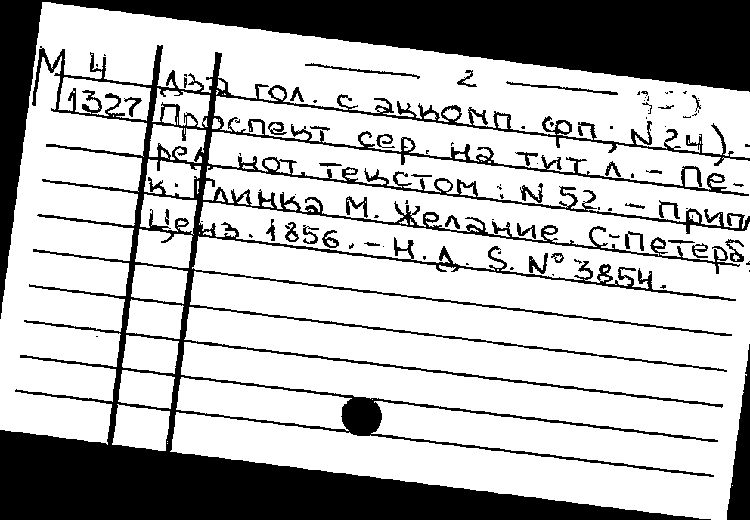 М 4
1327
2
два гол. с аккомп. фп; N 24). -
Проспект сер. на тит. л. - Пе-
ред нот. текстом: N 52. - Прип
к: Глинка М. Желание. С.-Петерб.
Ценз. 1856. - Н. Д. S. N° 3854.